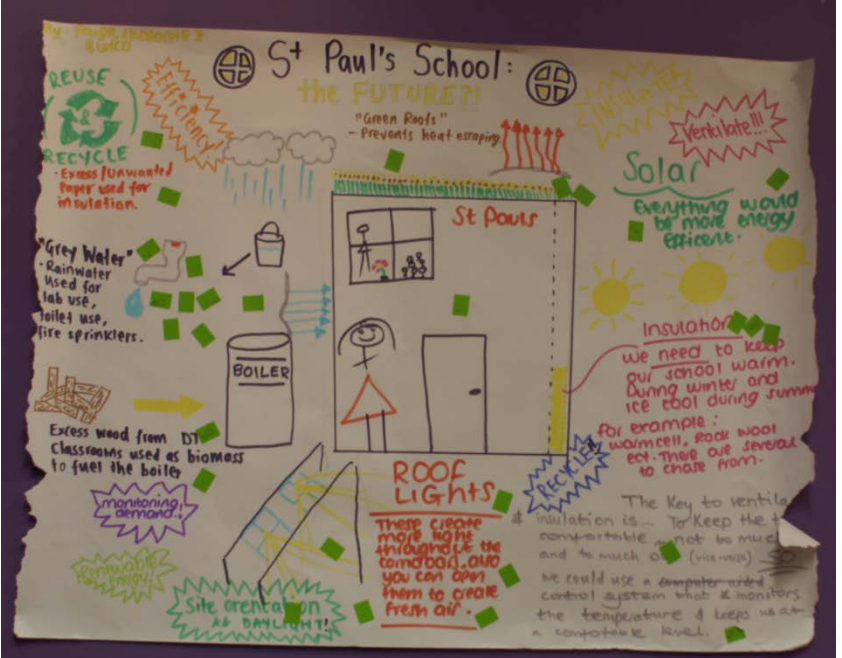 St Paul's School:
the FUTURE?!
REUSE
&
RECYCLE
- Excess/Unwanted
Paper used for
insulation.
Efficiency!
"Green Roofs"
- Prevents heat escaping.
INSULATE
Ventilate!!!
Solar
Everything would
be more energy
efficent.
St Pauls
"Grey Water"
- Rainwater
used for
lab use,
toilet use,
fire sprinklers.
BOILER
Insulation
we need to keep
our school warm.
During winter and
ice cool during summ
For example:
warmcell, Rock wool
ect. There are several
to chose from.
Excess wood from DT
Classrooms used as biomass
to fuel the boiler
monitoring
demand!
Renewable
Energy!
Site orentation
at DAYLIGHT!
ROOF
LIGHTS
These create
more light
throughout the
also
you can open
them to create
fresh air.
RECYCLE!
The Key to ventila
& insulation is... To Keep the t
comfortable not to much
and to much (visa
SO
we could use a computer aided
control system that monitors
the temperature & keeps us at
a comfortable level.